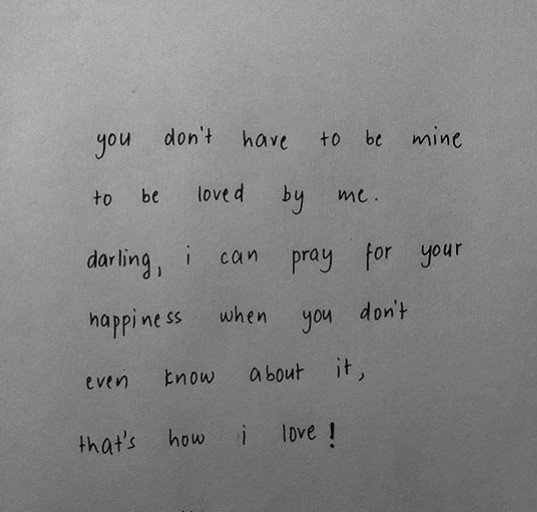 you don't have to be mine
to be loved by me.
darling, i can pray for your
happiness when you don't
even know about it,
that's how i love!